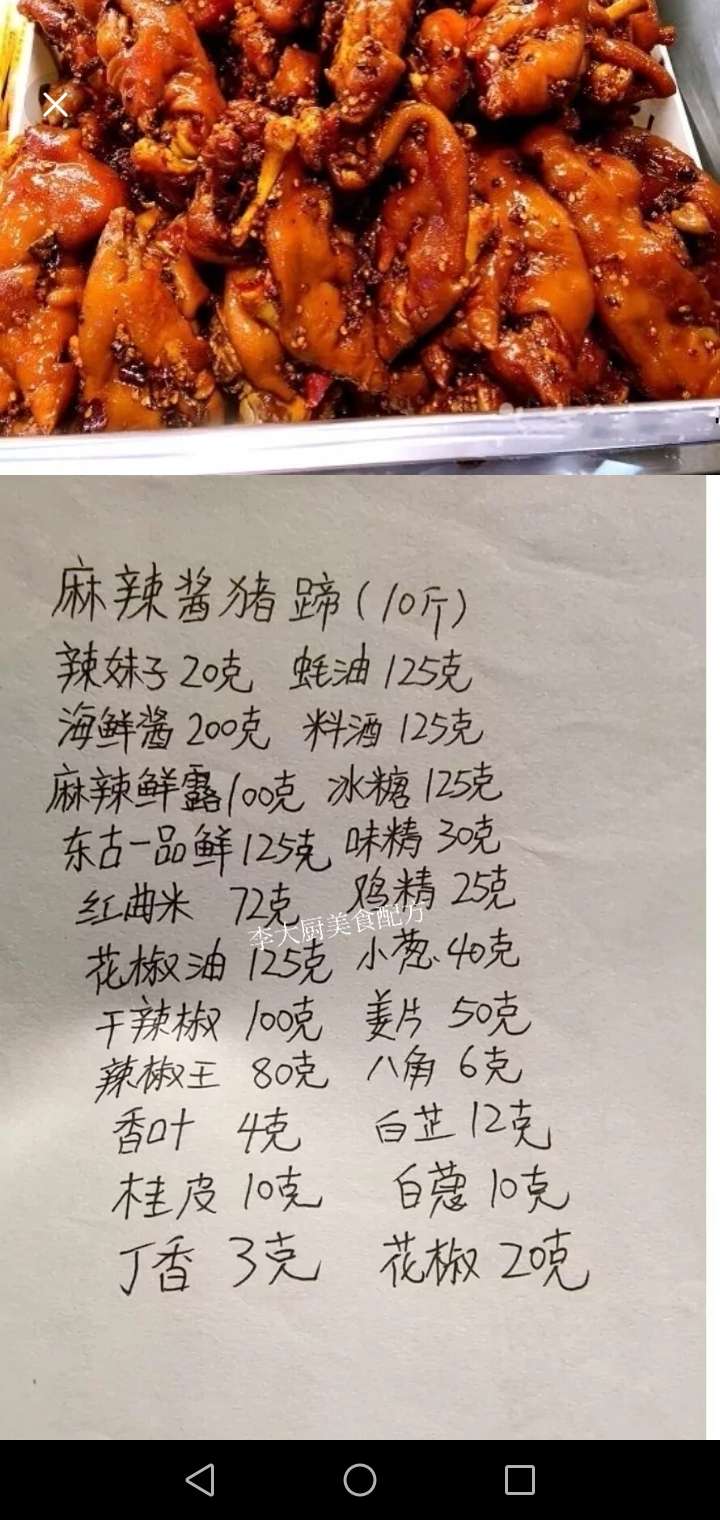 麻辣酱猪蹄(10斤)
辣妹子 20克 蚝油 125克
海鲜酱 200克 料酒 125克
麻辣鲜露 100克 冰糖 125克
东古一品鲜 125克 味精 30克
红曲米 72克 鸡精 25克
李大厨美食配方
花椒油 125克 小葱 40克
干辣椒 100克 姜片 50克
辣椒王 80克 八角 6克
香叶 4克 白芷 12克
桂皮 10克 白蔻 10克
丁香 3克 花椒 20克